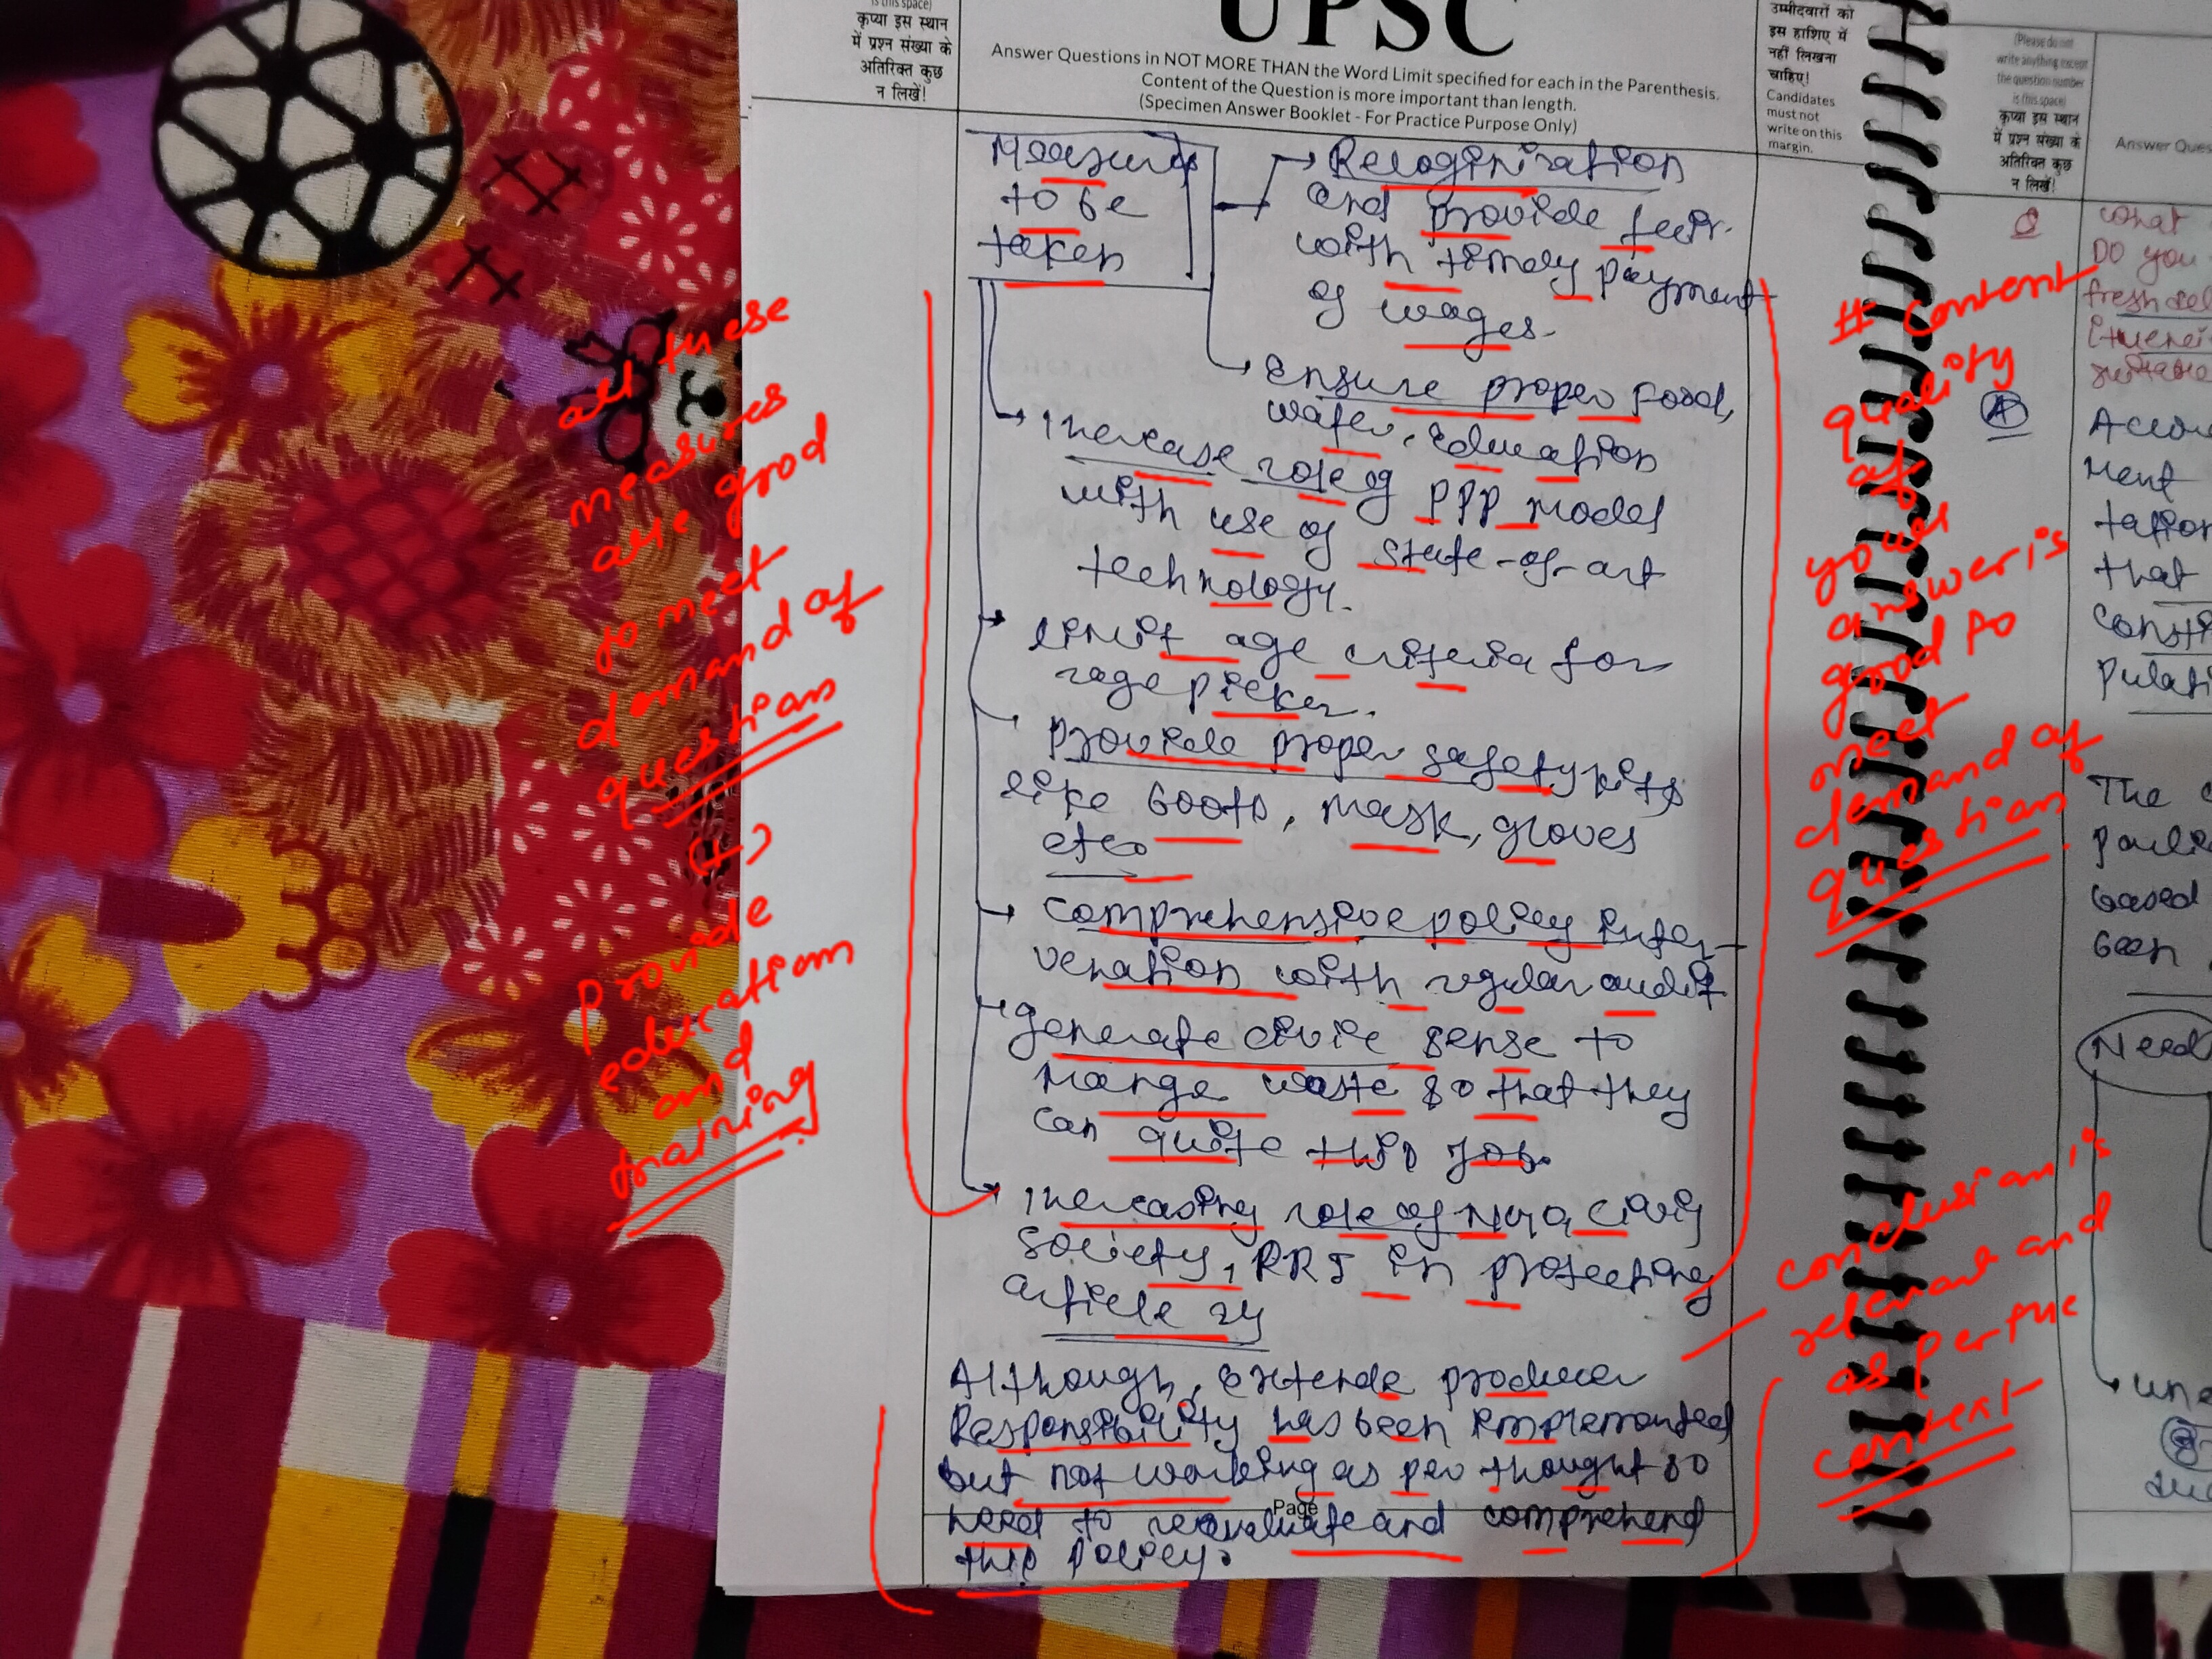 is this space)
कृप्या इस स्थान
में प्रश्न संख्या के
अतिरिक्त कुछ
न लिखें!
UPSC
Answer Questions in NOT MORE THAN the Word Limit specified for each in the Parenthesis.
Content of the Question is more important than length.
(Specimen Answer Booklet - For Practice Purpose Only)
उम्मीदवारों को
इस हाशिए में
नहीं लिखना
चाहिए!
Candidates
must not
write on this
margin.
Measures
to be
taken
Recoginization
and provide fair
with timely payment
of wages.
Ensure proper food,
water, Education
Increase role of PPP model
with use of state-of-art
technology.
limit age criteria for
rage picker.
provide proper safety kits
like boots, mask, gloves
etc.
comprehensive policy inter-
venation with regular audit
generate civic sense to
mange waste so that they
can quite this job.
Increasing role of NGO, civig
society, RRJ in protecting
article 24
Although, Extende producer
Responsibility has been implemanted
but not working as per thought so
need to reavaluate and comprehend
this policy.
Page
all these
measures
are good
to meet
demand of
question
(+)
provide
education
and
training
# content
quality
of
your
answer is
good to
meet
demand of
question
conclusion is
relevant and
as per the
context
(Please do not
write anything except
the question number
is this space)
कृप्या इस स्थान
में प्रश्न संख्या के
अतिरिक्त कुछ
न लिखें!
Answer Ques
Q
what
Do you
fresh
A
ment
that
The
based
been
Need